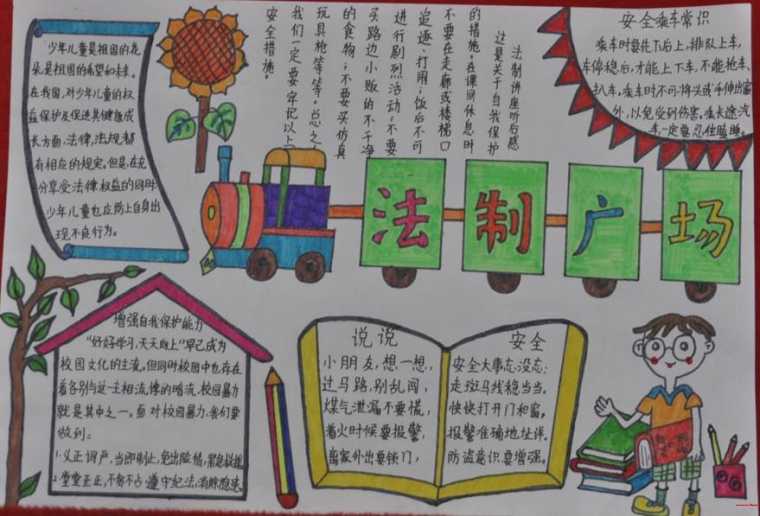 少年儿童是祖国的花
朵是祖国的希望和未来。
在我国,对少年儿童的权
益保护及促进其健康成
长方面,法律,法规都
有相应的规定。但是,在充
分享受法律权益的同时
少年儿童也应防止自身出
现不良行为。
法制讲座听后感
这是关于自我保护
的措施,在课间休息时
不要在走廊或楼梯口
追逐、打闹;饭后不可
进行剧烈活动;不要
买路边小贩的不干净
的食物;不要买仿真
玩具枪等等。总之,
我们一定要牢记以上
安全措施。
安全乘车常识
乘车时要先下后上,排队上车,
车停稳后,才能上下车,不能抢车、
扒车,乘车时不可将头或手伸出窗
外,以免受到伤害,乘长途汽
车一定要忍住瞌睡。
法制广场
增强自我保护能力
“好好学习,天天向上”早已成为
校园文化的主流,但同时校园中也存在
着各别与这一主相流悖的暗流,校园暴力
就是其中之一。面对校园暴力,我们要
做到:
1.义正词严,当即制止,
2.堂堂正正,不
说说
小朋友,想一想,
过马路,别乱闯,
煤气泄漏不要慌,
着火时候要报警,
离家外出要锁门,
安全
安全大事忘没忘:
走斑马线稳当当。
快快打开门和窗,
报警准确地址详。
防盗意识要增强。